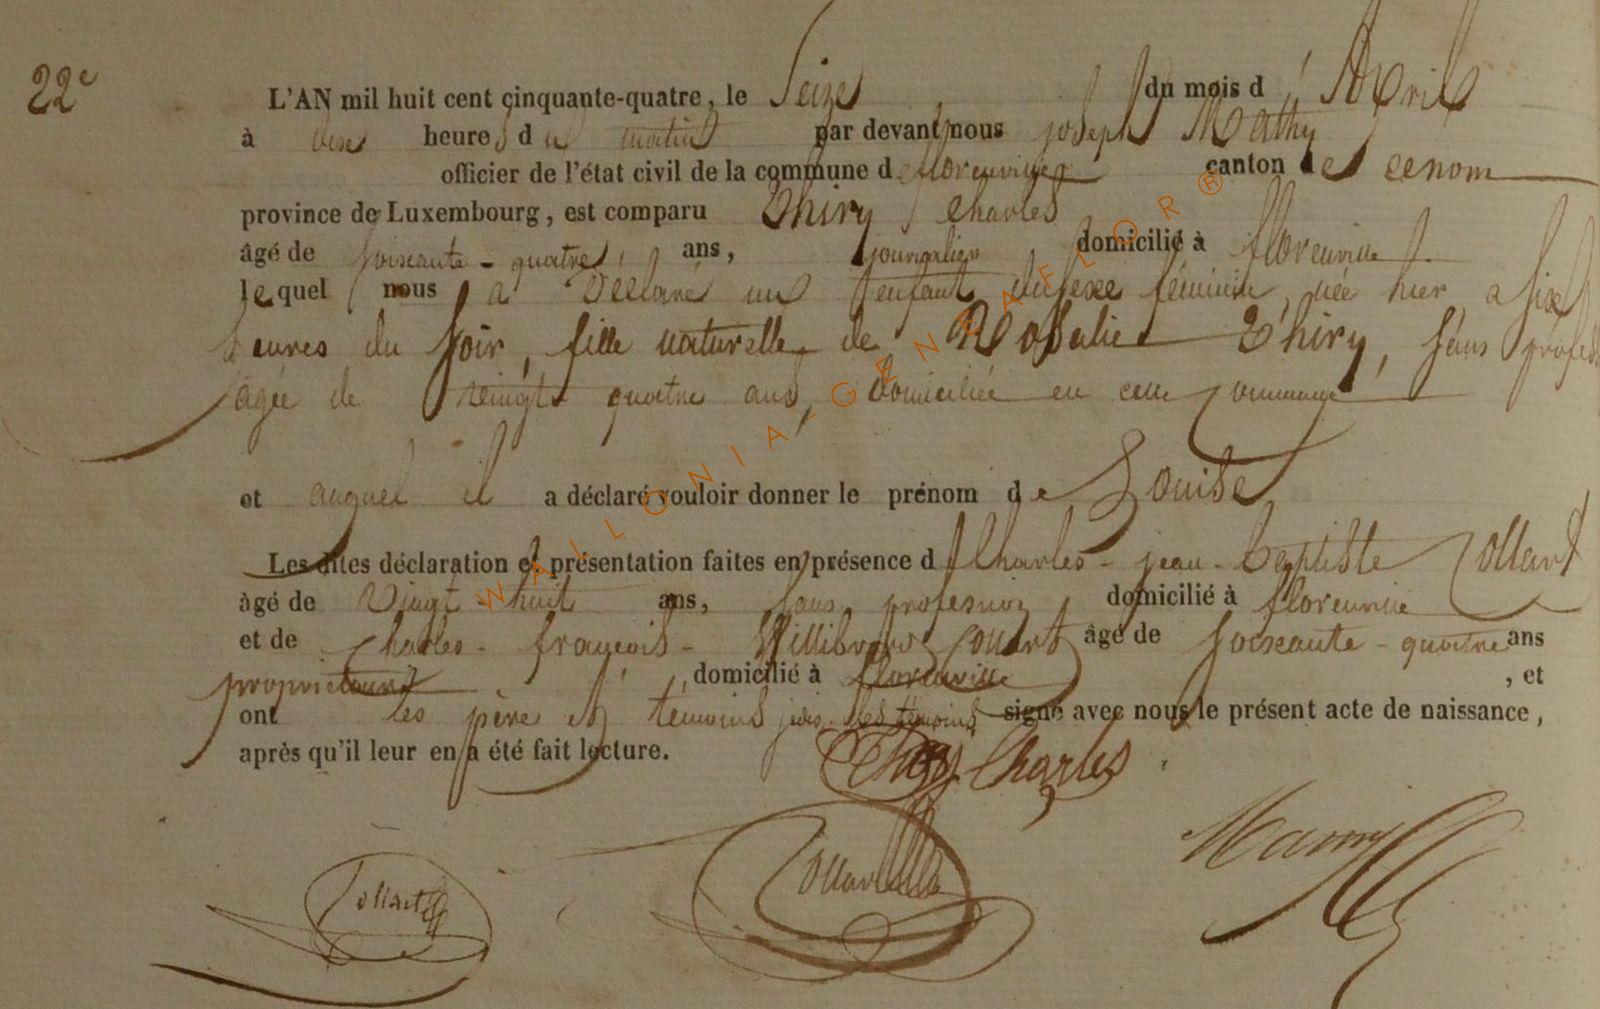 22e
L'AN mil huit cent cinquante-quatre, le Seize du mois d'Avril
à heures du matin par devant nous joseph Mathy
officier de l'état civil de la commune de florenville canton de ce nom
province de Luxembourg, est comparu Thiry Charles
âgé de soixante-quatre ans, journalier domicilié à florenville
lequel nous a Déclaré un enfant du sexe féminin, née hier a six
heures du soir, fille naturelle de Rosalie Thiry, sans profess
agée de vingt quatre ans, domiciliée en cette commune
et auquel il a déclaré vouloir donner le prénom de Louise
Les dites déclaration et présentation faites en présence d Charles-jean-baptiste Collart
âgé de Vingt-huit ans, sans profession domicilié à florenville
et de Charles-françois-Willibrord Collart âgé de soixante-quatre ans
propriétaire domicilié à florenville, et
ont les père et témoins les témoins signé avec nous le présent acte de naissance,
après qu'il leur en a été fait lecture.
Thiry Charles
Collart Collart
WALLONIA-GENEAFLOR®